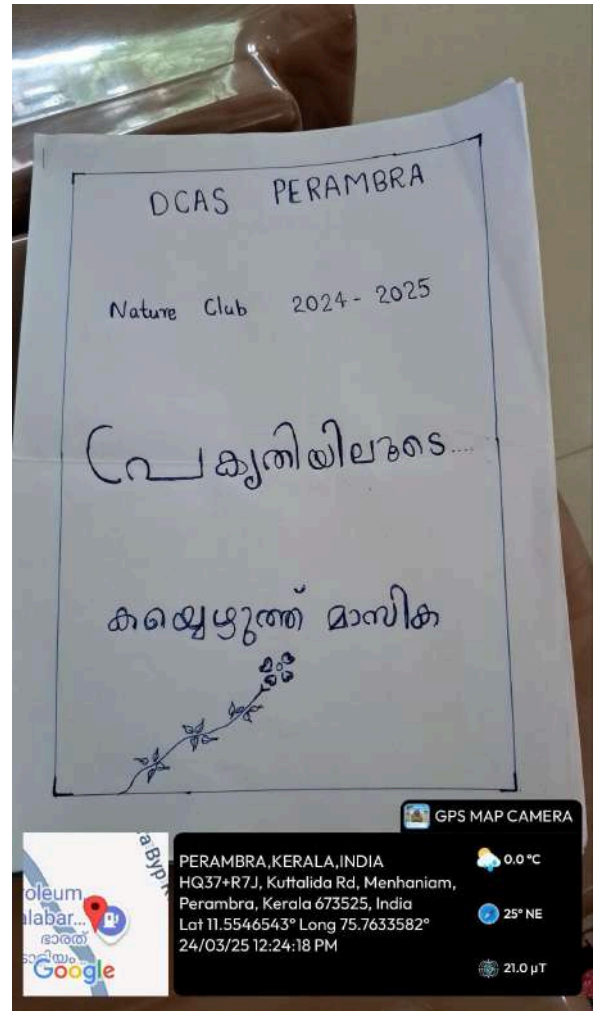 DCAS PERAMBRA
Nature Club 2024 - 2025
പ്രകൃതിയിലൂടെ....
കയ്യെഴുത്ത് മാസിക
GPS MAP CAMERA
PERAMBRA,KERALA,INDIA
HQ37+R7J, Kuttalida Rd, Menhaniam,
Perambra, Kerala 673525, India
Lat 11.5546543° Long 75.7633582°
24/03/25 12:24:18 PM
0.0 °C
25° NE
21.0 µT
a Byp
oleum
alabar...
ഭാരത്
Google